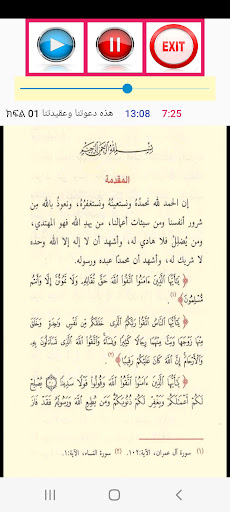 EXIT
ክፍል 01 هذه دعوتنا وعقيدتنا 13:08 7:25
بسم الله الرحمن الرحيم
المقدمة
إن الحمد لله نحمدُهُ ونستعينُهُ ونستغفرُهُ، ونعوذُ بالله من
شرور أنفسنا ومن سيئات أعمالنا، من يهدِ الله فهو المهتدي،
ومن يُضلِلْ فلا هادي له، وأشهد أن لا إله إلا الله وحده
لا شريك له، وأشهد أن محمدًا عبده ورسوله.
﴿ يَٰٓأَيُّهَا ٱلَّذِينَ ءَامَنُوا۟ ٱتَّقُوا۟ ٱللَّهَ حَقَّ تُقَاتِهِۦ وَلَا تَمُوتُنَّ إِلَّا وَأَنتُم
مُّسْلِمُونَ ﴾ (١).
﴿ يَٰٓأَيُّهَا ٱلنَّاسُ ٱتَّقُوا۟ رَبَّكُمُ ٱلَّذِى خَلَقَكُم مِّن نَّفْسٍ وَٰحِدَةٍ وَخَلَقَ
مِنْهَا زَوْجَهَا وَبَثَّ مِنْهُمَا رِجَالًا كَثِيرًا وَنِسَآءً وَٱتَّقُوا۟ ٱللَّهَ ٱلَّذِى تَسَآءَلُونَ بِهِۦ
وَٱلْأَرْحَامَ إِنَّ ٱللَّهَ كَانَ عَلَيْكُمْ رَقِيبًا ﴾ (٢).
﴿ يَٰٓأَيُّهَا ٱلَّذِينَ ءَامَنُوا۟ ٱتَّقُوا۟ ٱللَّهَ وَقُولُوا۟ قَوْلًا سَدِيدًا ۝ يُصْلِحْ
لَكُمْ أَعْمَٰلَكُمْ وَيَغْفِرْ لَكُمْ ذُنُوبَكُمْ وَمَن يُطِعِ ٱللَّهَ وَرَسُولَهُۥ فَقَدْ فَازَ
(١) سورة آل عمران، الآية: ١٠٢. (٢) سورة النساء، الآية: ١.